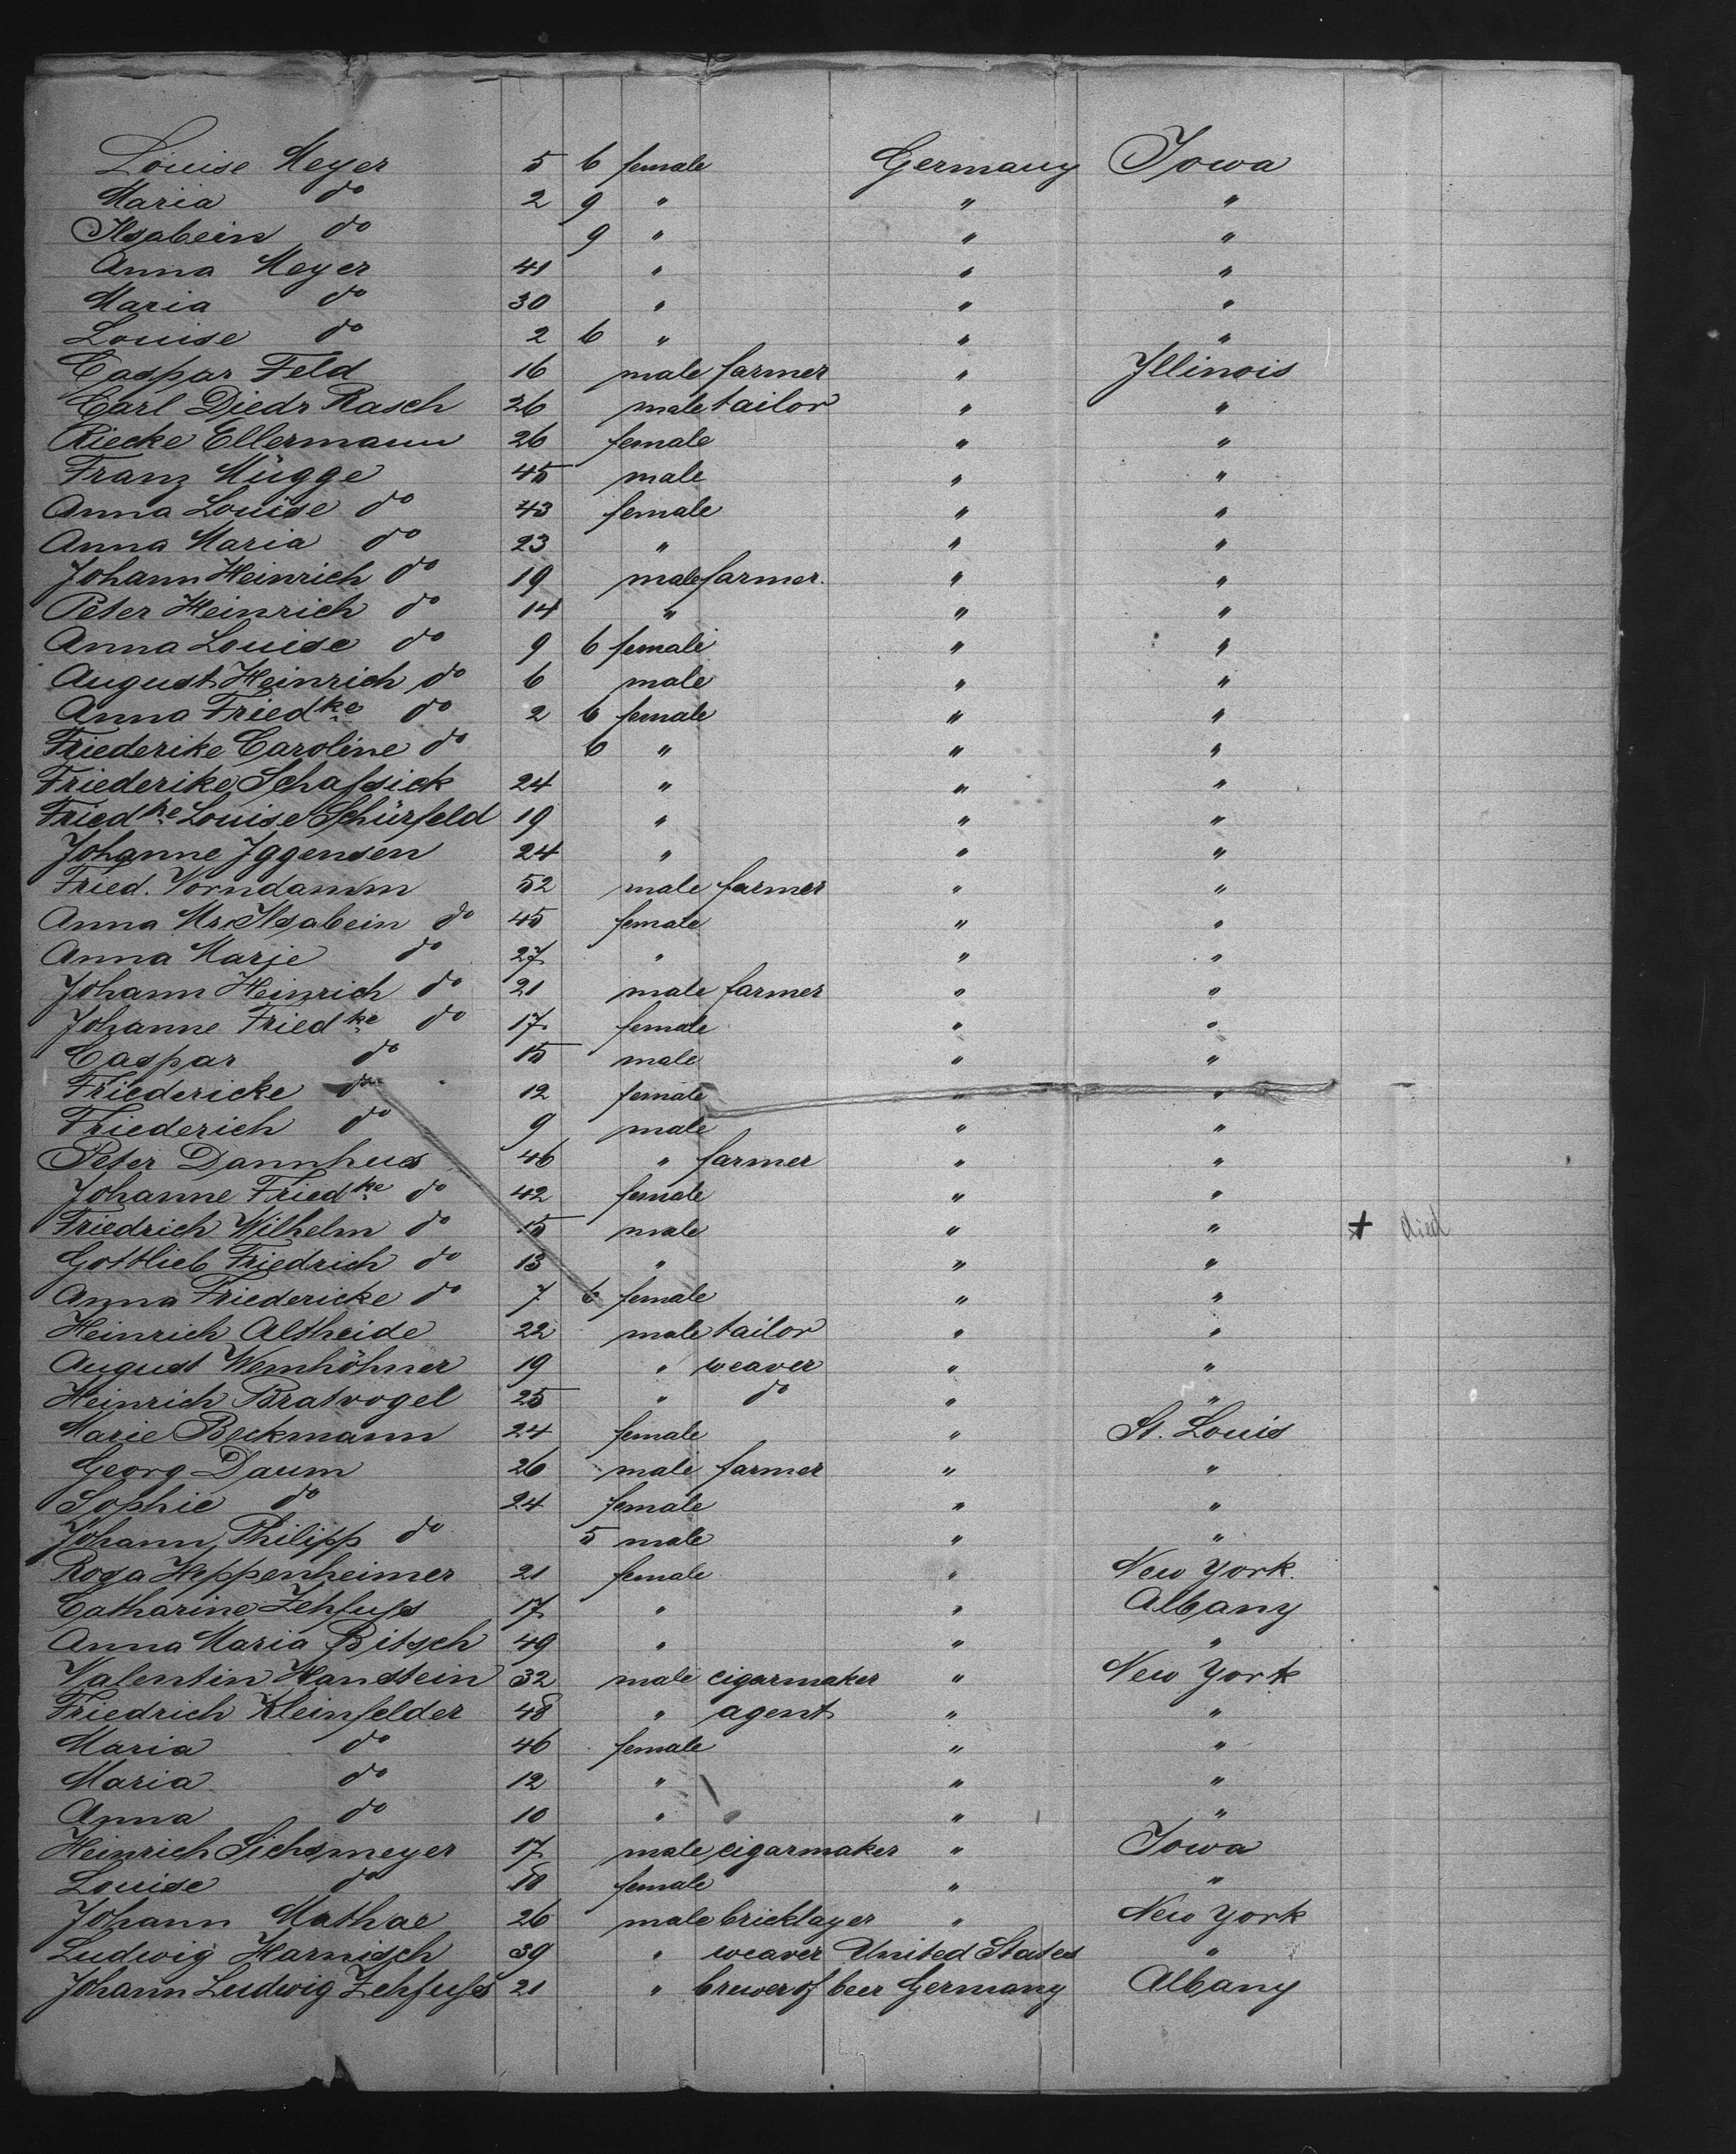 Louise Meyer 5 6 female Germany Iowa
Maria do 2 9 " " "
Ilsabein do 9 " " "
Anna Meyer 41 " " "
Maria do 30 " " "
Louise do 2 6 " " "
Caspar Feld 16 male farmer " Illinois
Carl Diedr Rasch 26 male tailor " "
Riecke Ellermann 26 female " "
Franz Mügge 45 male " "
Anna Louise do 43 female " "
Anna Maria do 23 " " "
Johann Heinrich do 19 male farmer. " "
Peter Heinrich do 14 " " "
Anna Louise do 9 6 female " "
August Heinrich do 6 male " "
Anna Friedke do 2 6 female " "
Friederike Caroline do 6 " " "
Friederike Schafsick 24 " " "
Friedke Louise Schürfeld 19 " " "
Johanne Iggensen 24 " " "
Fried. Vorndamm 52 male farmer " "
Anna Mr. Ilsabein do 45 female " "
Anna Marie do 27 " " "
Johann Heinrich do 21 male farmer " "
Johanne Friedke do 17 female " "
Caspar do 15 male " "
Friedericke do 12 female " "
Friederich do 9 male " "
Peter Dannhus 46 " farmer " "
Johanne Friedke do 42 female " "
Friedrich Wilhelm do 15 male " " + died
Gottlieb Friedrich do 13 " " "
Anna Friedericke do 7 6 female " "
Heinrich Altheide 22 male tailor " "
August Wemhöhner 19 " weaver " "
Heinrich Bratvogel 25 " do " "
Marie Beckmann 24 female " St. Louis
Georg Daum 26 male farmer " "
Sophie do 24 female " "
Johann Philipp do 5 male " "
Rosa Heppenheimer 21 female " New York.
Catharine Zehfuss 17 " " Albany
Anna Maria Bitsch 49 " " "
Valentin Hanstein 32 male cigarmaker " New York
Friedrich Kleinfelder 48 " agent " "
Maria do 46 female " "
Maria do 12 " " "
Anna do 10 " " "
Heinrich Sichsmeyer 17 male cigarmaker " Iowa
Louise do female " "
Johann Mathae 26 male bricklayer " New York
Ludwig Harnisch 39 " weaver United States "
Johann Ludwig Zehfuss 21 " brewer of beer Germany Albany